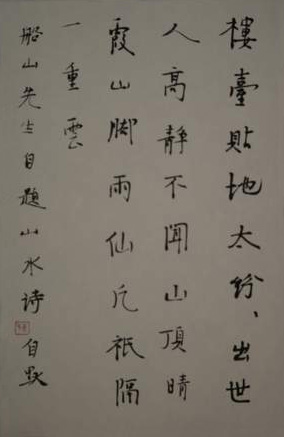 樓臺貼地太紛、出世
人高靜不聞山頂晴
霞山脚雨仙凡祇隔
一重雲
船山先生自題山水诗 自默